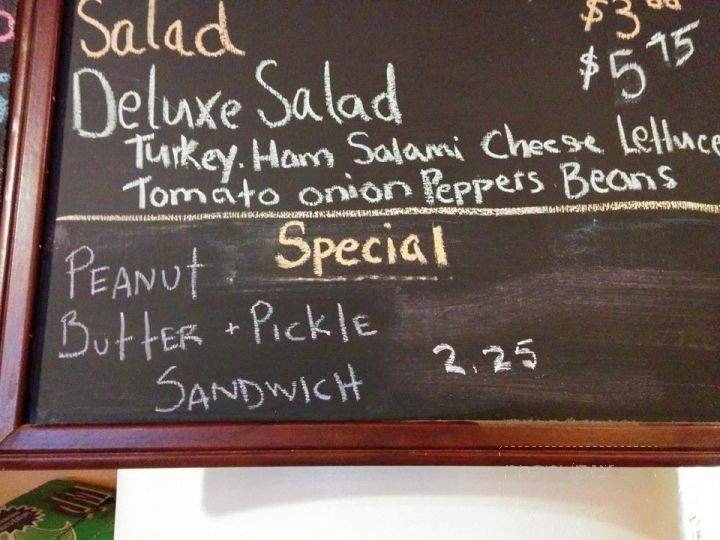 Salad $3.00
Deluxe Salad $5.75
Turkey. Ham Salami Cheese Lettuce
Tomato onion Peppers Beans
Special
PEANUt
ButtER + PickLE
SANDWICH 2.25